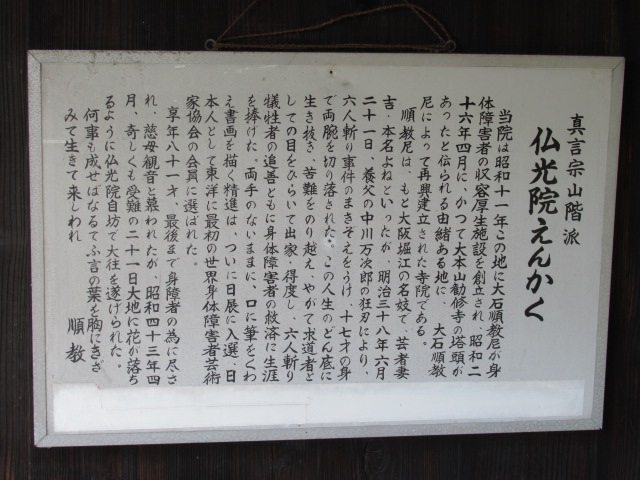 真言宗山階派
仏光院えんかく
当院は昭和十一年この地に大石順教尼が身
体障害者の収容厚生施設を創立され、昭和二
十六年四月に、かつて大本山勧修寺の塔頭が
あったと伝られる由緒ある地に、大石順教
尼によって再興建立された寺院である。
順教尼は、もと大阪堀江の名妓で、芸者妻
吉・本名よねといったが、明治三十八年六月
二十一日、養父の中川万次郎の狂刃により、
六人斬り事件のまきぞえをうけ、十七才の身
で両腕を切り落された。この人生のどん底に
生き抜き、苦難をのり越え、やがて求道者と
しての目をひらいて出家・得度し、六人斬り
犠牲者の追善ともに身体障害者の救済に生涯
を捧げた。両手のないままに、口に筆をくわ
え書画を描く精進は、ついに日展に入選、日
本人として東洋に最初の世界身体障害者芸術
家協会の会員に選ばれた。
享年八十一才、最後まで身障者の為に尽さ
れ、慈母観音と慕われたが、昭和四十三年四
月、奇しくも受難の二十一日大地に花が落ち
るように仏光院自坊で大往を遂げられた。
何事も成せばなるてふ言の葉を胸にきざ
みて生きて来しわれ　順教